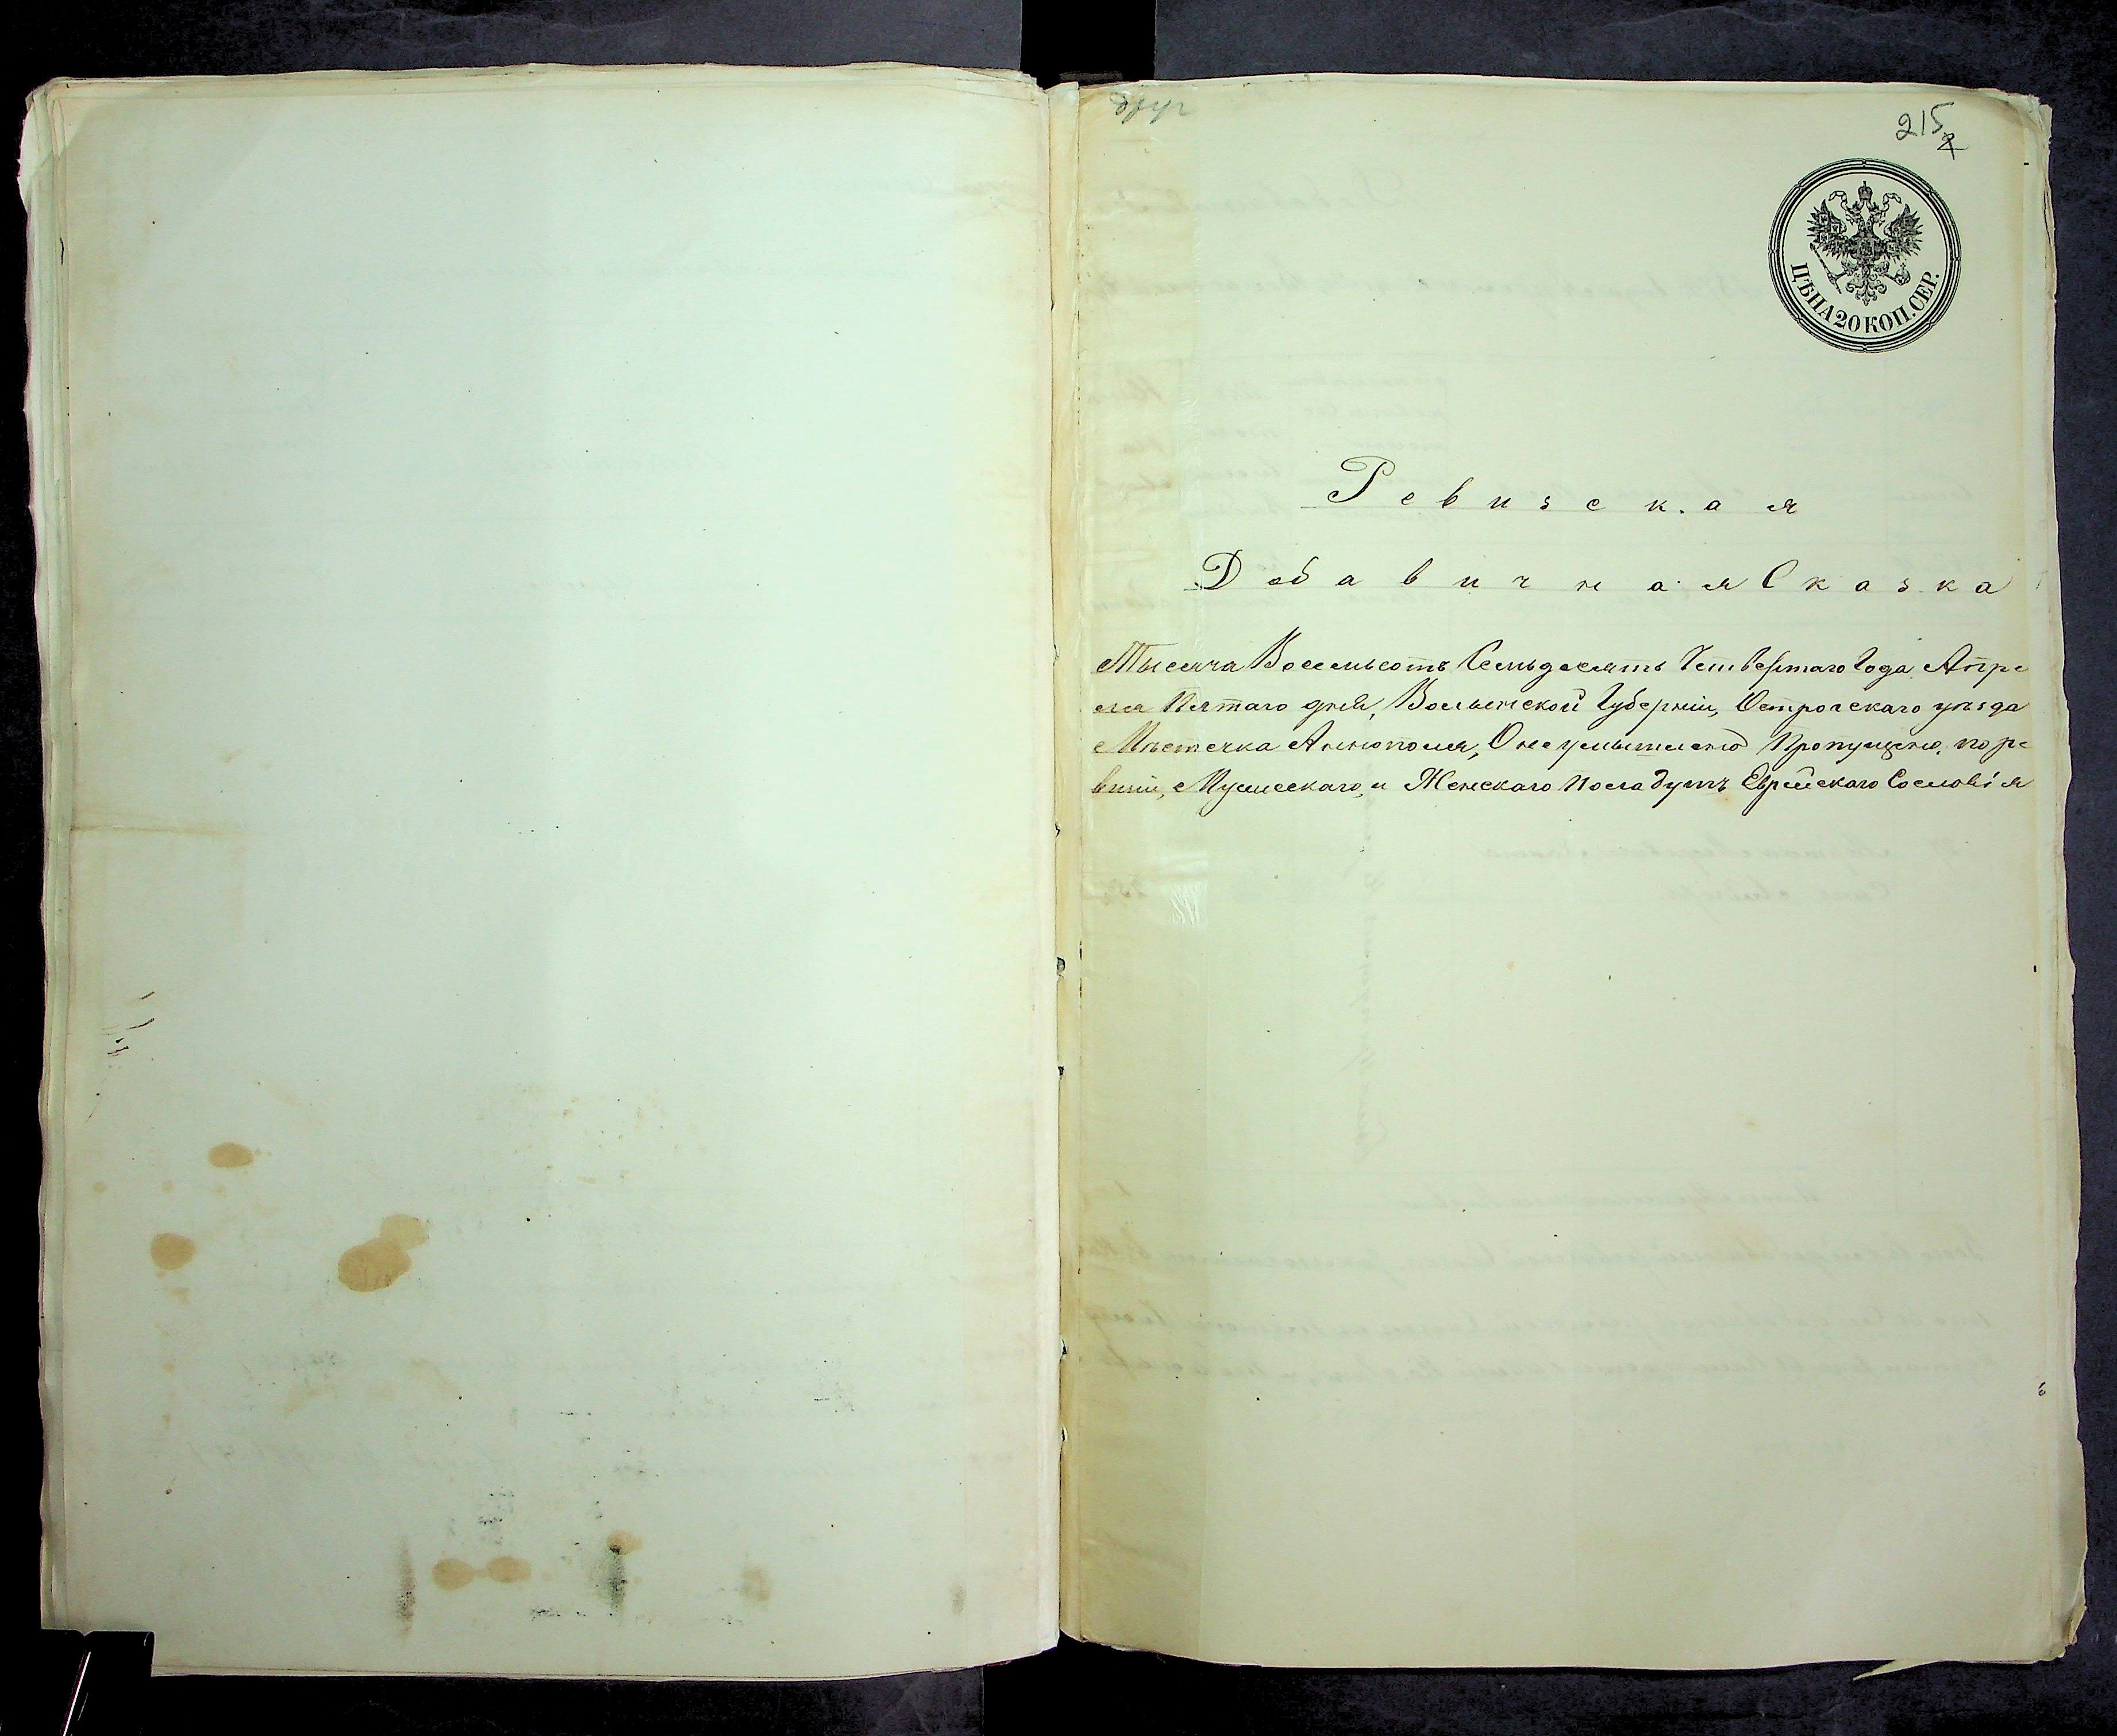 друг
215
ЦѢНА 20 КОП. СЕР.
Ревизская
Добавичная Сказка
Тысяча Восемьсотъ Семьдесятъ Четвертаго Года Апре
ля Пятаго дня, Волынской Губерніи, Острогскаго уѣзда
Мѣстечка Аннополя, О неумышлено Пропущено, по ре
визіи, Мужескаго, и Женскаго Пола душъ Еврейскаго Сословія